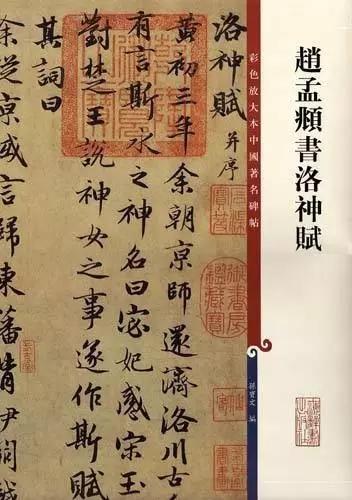 趙孟頫書洛神賦
彩色放大本中國著名碑帖
孫寶文 編
洛神賦 并序
黄初三年余朝京師還濟洛川古
有言斯水之神名曰宓妃感宋玉
對楚王説神女之事遂作斯賦
其詞曰
余從京域言歸東藩背伊闕